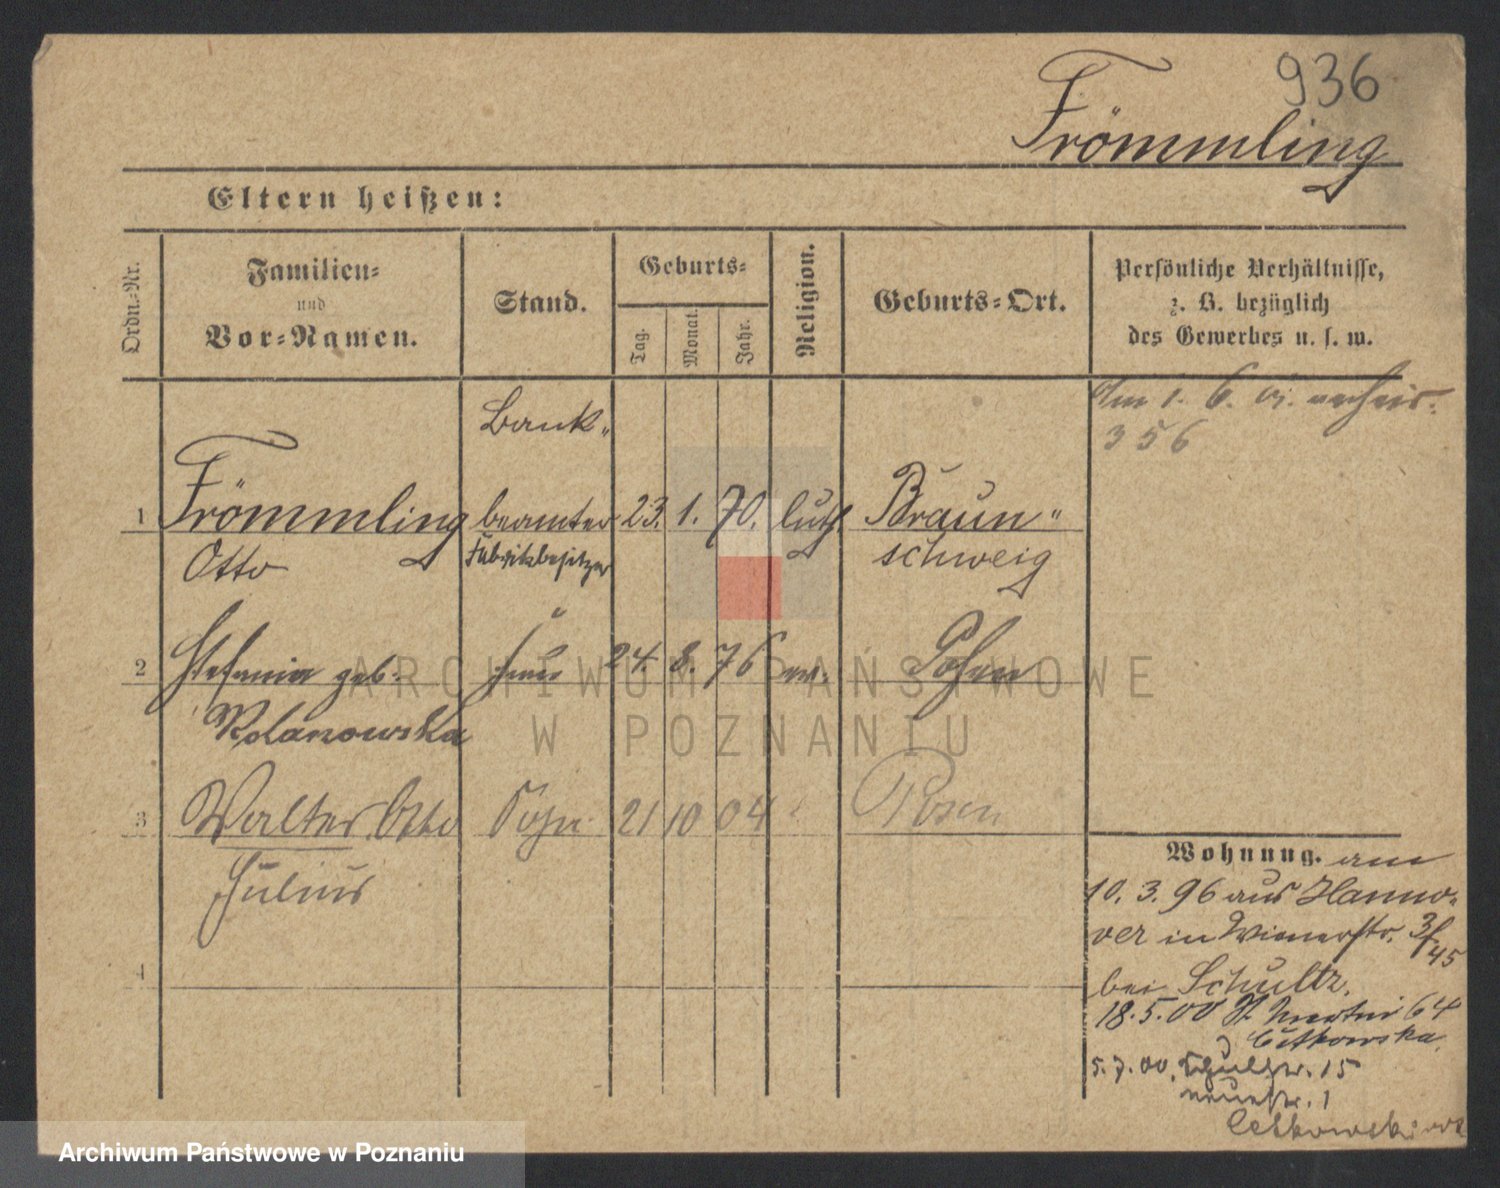 936
Frömmling
Eltern heißen:
Ordn.=Nr.
Familien=
und
Vor=Namen.
Stand.
Geburts=
Tag.
Monat.
Jahr.
Religion.
Geburts=Ort.
Persönliche Verhältnisse,
z. B. bezüglich
des Gewerbes u. s. w.
Am 1. 6. 01.
356
Bank„
1 Frömmling beamter 23. 1. 70. luth Braun„
Otto Fabrikbesitzer schweig
2 Stefania geb. 24. 8. 76 ev. Posen
Wolanowska
3 Walter Otto Sohn 21 10 04 Posen
Julius
4
Wohnung. am
10. 3. 96 aus Hanno-
ver in Wienerstr. 3/45
bei Schultz.
18.5.00 St. Martin 64
Cutkowska
5.7.00. Schulstr. 15
neuestr. 1
ARCHIWUM PAŃSTWOWE
W POZNANIU
Archiwum Państwowe w Poznaniu